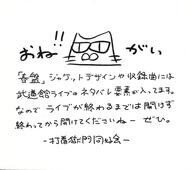 おね!!がい
「音盤」ジャケットデザインや収録曲には
武道館ライブのネタバレ要素が入ってます。
なので ライブが終わるまでは開けず
終わってから開けてくださいねー ぜひ。
-打首獄門同好会-